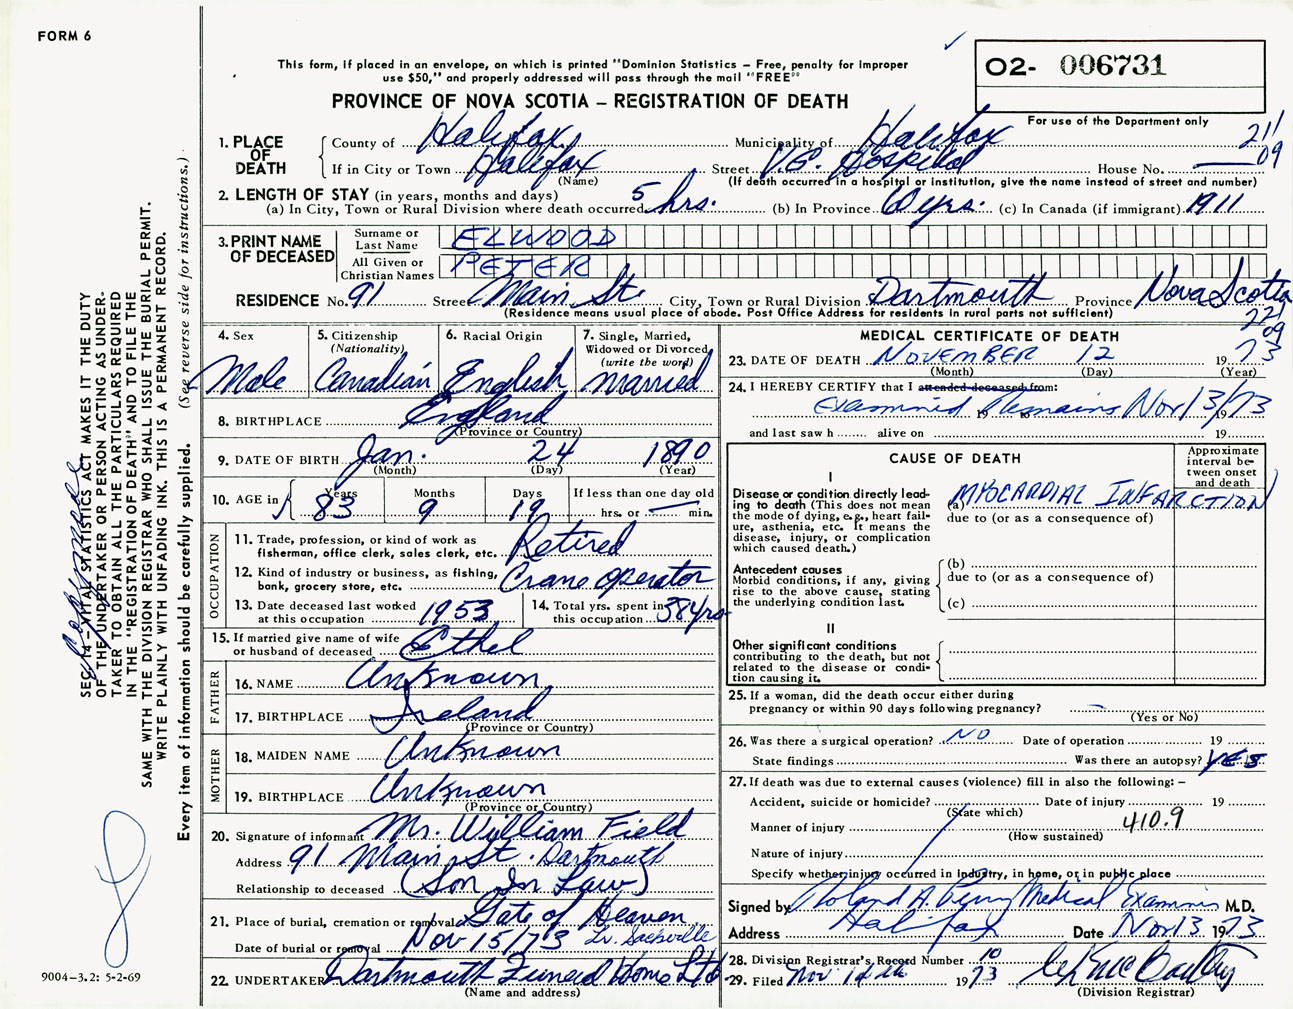 FORM 6
This form, if placed in an envelope, on which is printed "Dominion Statistics – Free, penalty for improper
use $50," and properly addressed will pass through the mail "FREE"
PROVINCE OF NOVA SCOTIA – REGISTRATION OF DEATH
O2- 006731
For use of the Department only
211
09
1. PLACE OF DEATH
County of Halifax Municipality of Halifax
If in City or Town Halifax Street V.G. Hospital House No. —
(Name) (If death occurred in a hospital or institution, give the name instead of street and number)
2. LENGTH OF STAY (in years, months and days)
(a) In City, Town or Rural Division where death occurred 5 hrs. (b) In Province yrs. (c) In Canada (if immigrant) 1911
3. PRINT NAME OF DECEASED
Surname or Last Name ELWOOD
All Given or Christian Names PETER
RESIDENCE No. 91 Street Main St. City, Town or Rural Division Dartmouth Province Nova Scotia
(Residence means usual place of abode. Post Office Address for residents in rural parts not sufficient)
221
09
4. Sex
Male
5. Citizenship
(Nationality)
Canadian
6. Racial Origin
English
7. Single, Married,
Widowed or Divorced
(write the word)
Married
8. BIRTHPLACE England
(Province or Country)
9. DATE OF BIRTH Jan. 24 1890
(Month) (Day) (Year)
10. AGE in
Years Months Days If less than one day old
83 9 19 hrs. or — min.
OCCUPATION
11. Trade, profession, or kind of work as
fisherman, office clerk, sales clerk, etc. Retired
12. Kind of industry or business, as fishing,
bank, grocery store, etc. Crane Operator
13. Date deceased last worked
at this occupation 1953
14. Total yrs. spent in
this occupation 38 yrs
15. If married give name of wife
or husband of deceased Ethel
FATHER
16. NAME Unknown
17. BIRTHPLACE Ireland
(Province or Country)
MOTHER
18. MAIDEN NAME Unknown
19. BIRTHPLACE Unknown
(Province or Country)
20. Signature of informant Mr. William Field
Address 91 Main St. Dartmouth
Relationship to deceased (Son In Law)
21. Place of burial, cremation or removal Gate of Heaven
Date of burial or removal Nov 15/73 Lr. Sackville
22. UNDERTAKER Dartmouth Funeral Home Ltd.
(Name and address)
MEDICAL CERTIFICATE OF DEATH
23. DATE OF DEATH NOVEMBER 12 19 73
(Month) (Day) (Year)
24. I HEREBY CERTIFY that I attended deceased from:
Examined 19 Remains Nov 13/73 19
and last saw h alive on 19
CAUSE OF DEATH
Approximate
interval be-
tween onset
and death
I
Disease or condition directly lead-
ing to death (This does not mean
the mode of dying, e.g., heart fail-
ure, asthenia, etc. It means the
disease, injury, or complication
which caused death.)
(a) MYOCARDIAL INFARCTION
due to (or as a consequence of)
Antecedent causes
Morbid conditions, if any, giving
rise to the above cause, stating
the underlying condition last.
(b)
due to (or as a consequence of)
(c)
II
Other significant conditions
contributing to the death, but not
related to the disease or condi-
tion causing it.
25. If a woman, did the death occur either during
pregnancy or within 90 days following pregnancy? –
(Yes or No)
26. Was there a surgical operation? NO Date of operation 19
State findings Was there an autopsy? YES
27. If death was due to external causes (violence) fill in also the following: –
Accident, suicide or homicide? Date of injury 19
(State which)
Manner of injury 410.9
(How sustained)
Nature of injury
Specify whether injury occurred in industry, in home, or in public place
Signed by Roland A. Perry Medical Examiner M.D.
Address Halifax Date Nov 13 1973
28. Division Registrar's Record Number 10
29. Filed Nov 19 73
(Division Registrar)
SEC. 14 – VITAL STATISTICS ACT MAKES IT THE DUTY
OF THE UNDERTAKER OR PERSON ACTING AS UNDER-
TAKER TO OBTAIN ALL THE PARTICULARS REQUIRED
IN THE "REGISTRATION OF DEATH" AND TO FILE THE
SAME WITH THE DIVISION REGISTRAR WHO SHALL ISSUE THE BURIAL PERMIT.
WRITE PLAINLY WITH UNFADING INK. THIS IS A PERMANENT RECORD.
Every item of information should be carefully supplied. (See reverse side for instructions.)
9004–3.2: 5-2-69